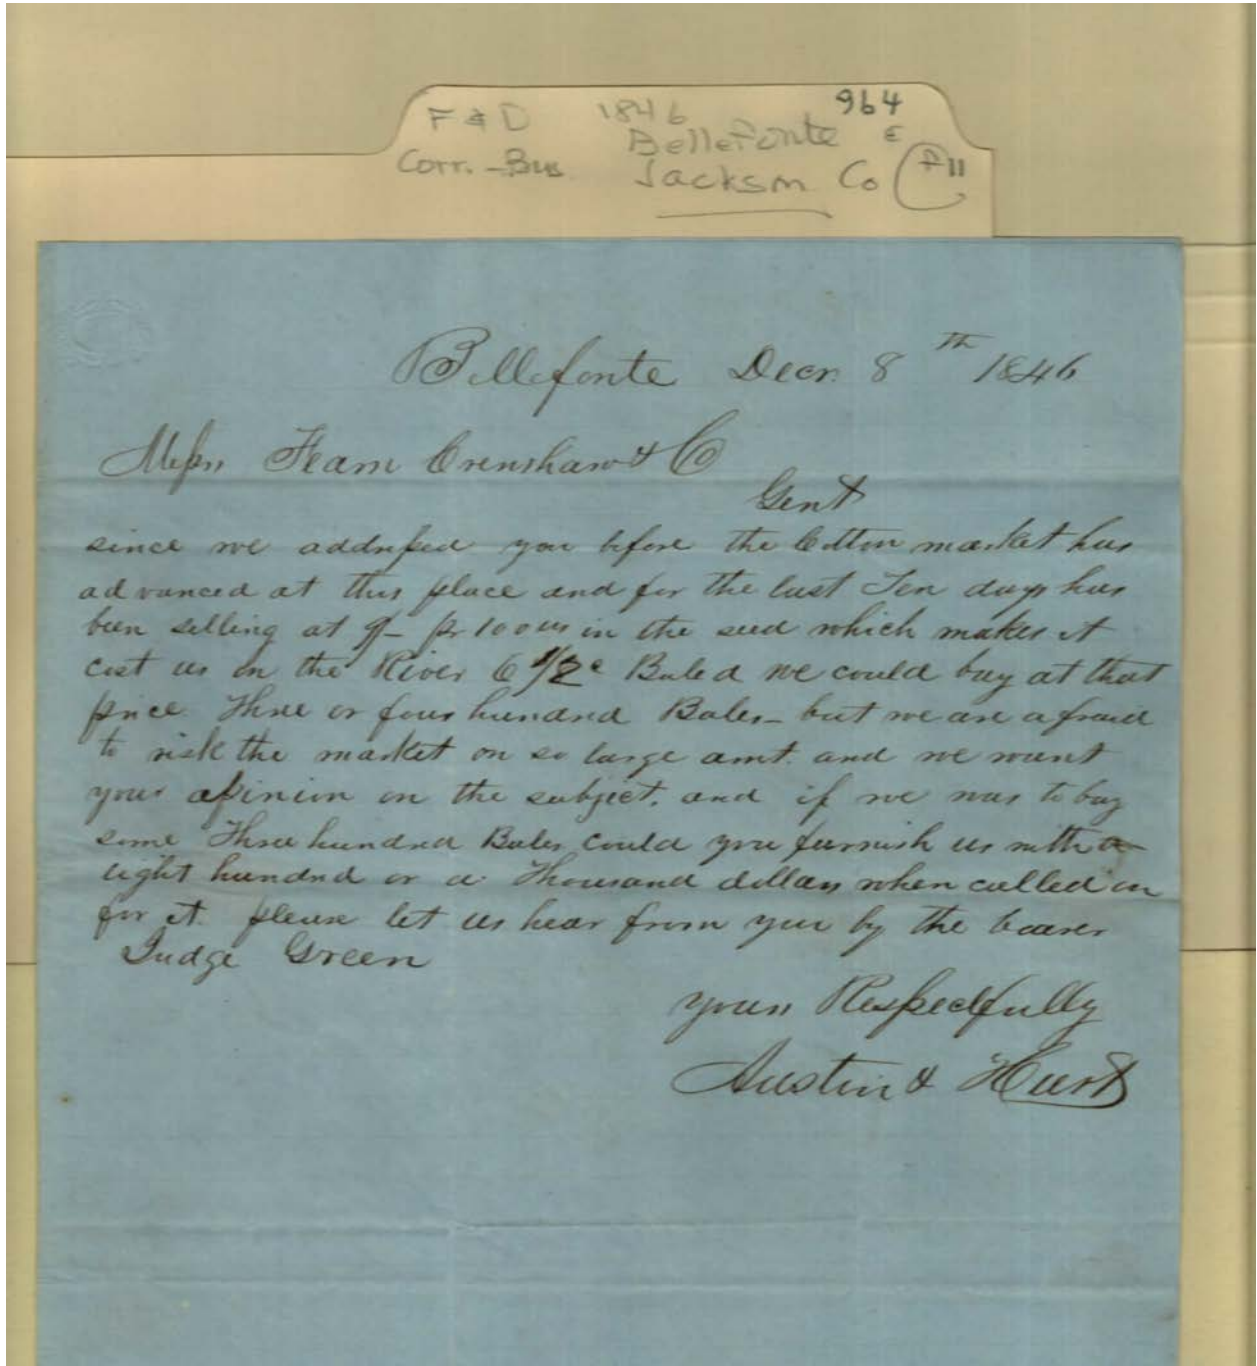 F & D 1846 964
Bellefonte E
Corr. - Bus. Jackson Co P11
Bellefonte Decr. 8th 1846
Messrs Fearn Crenshaw & Co
Gent
since we addressed you before the Cotton market has
advanced at this place and for the last Ten days has
been selling at pr 100 in the seed which makes it
cost us in the River 6 1/2c Baled we could buy at that
price Three or four hundred Bales - but we are afraid
to risk the market on so large amt. and we want
your opinion on the subject. and if we was to buy
some Three hundred Bales could you furnish us with
eight hundred or a Thousand dollars when called on
for it. please let us hear from you by the bearer
Judge Green
yours Respectfully
Austin & Hurt